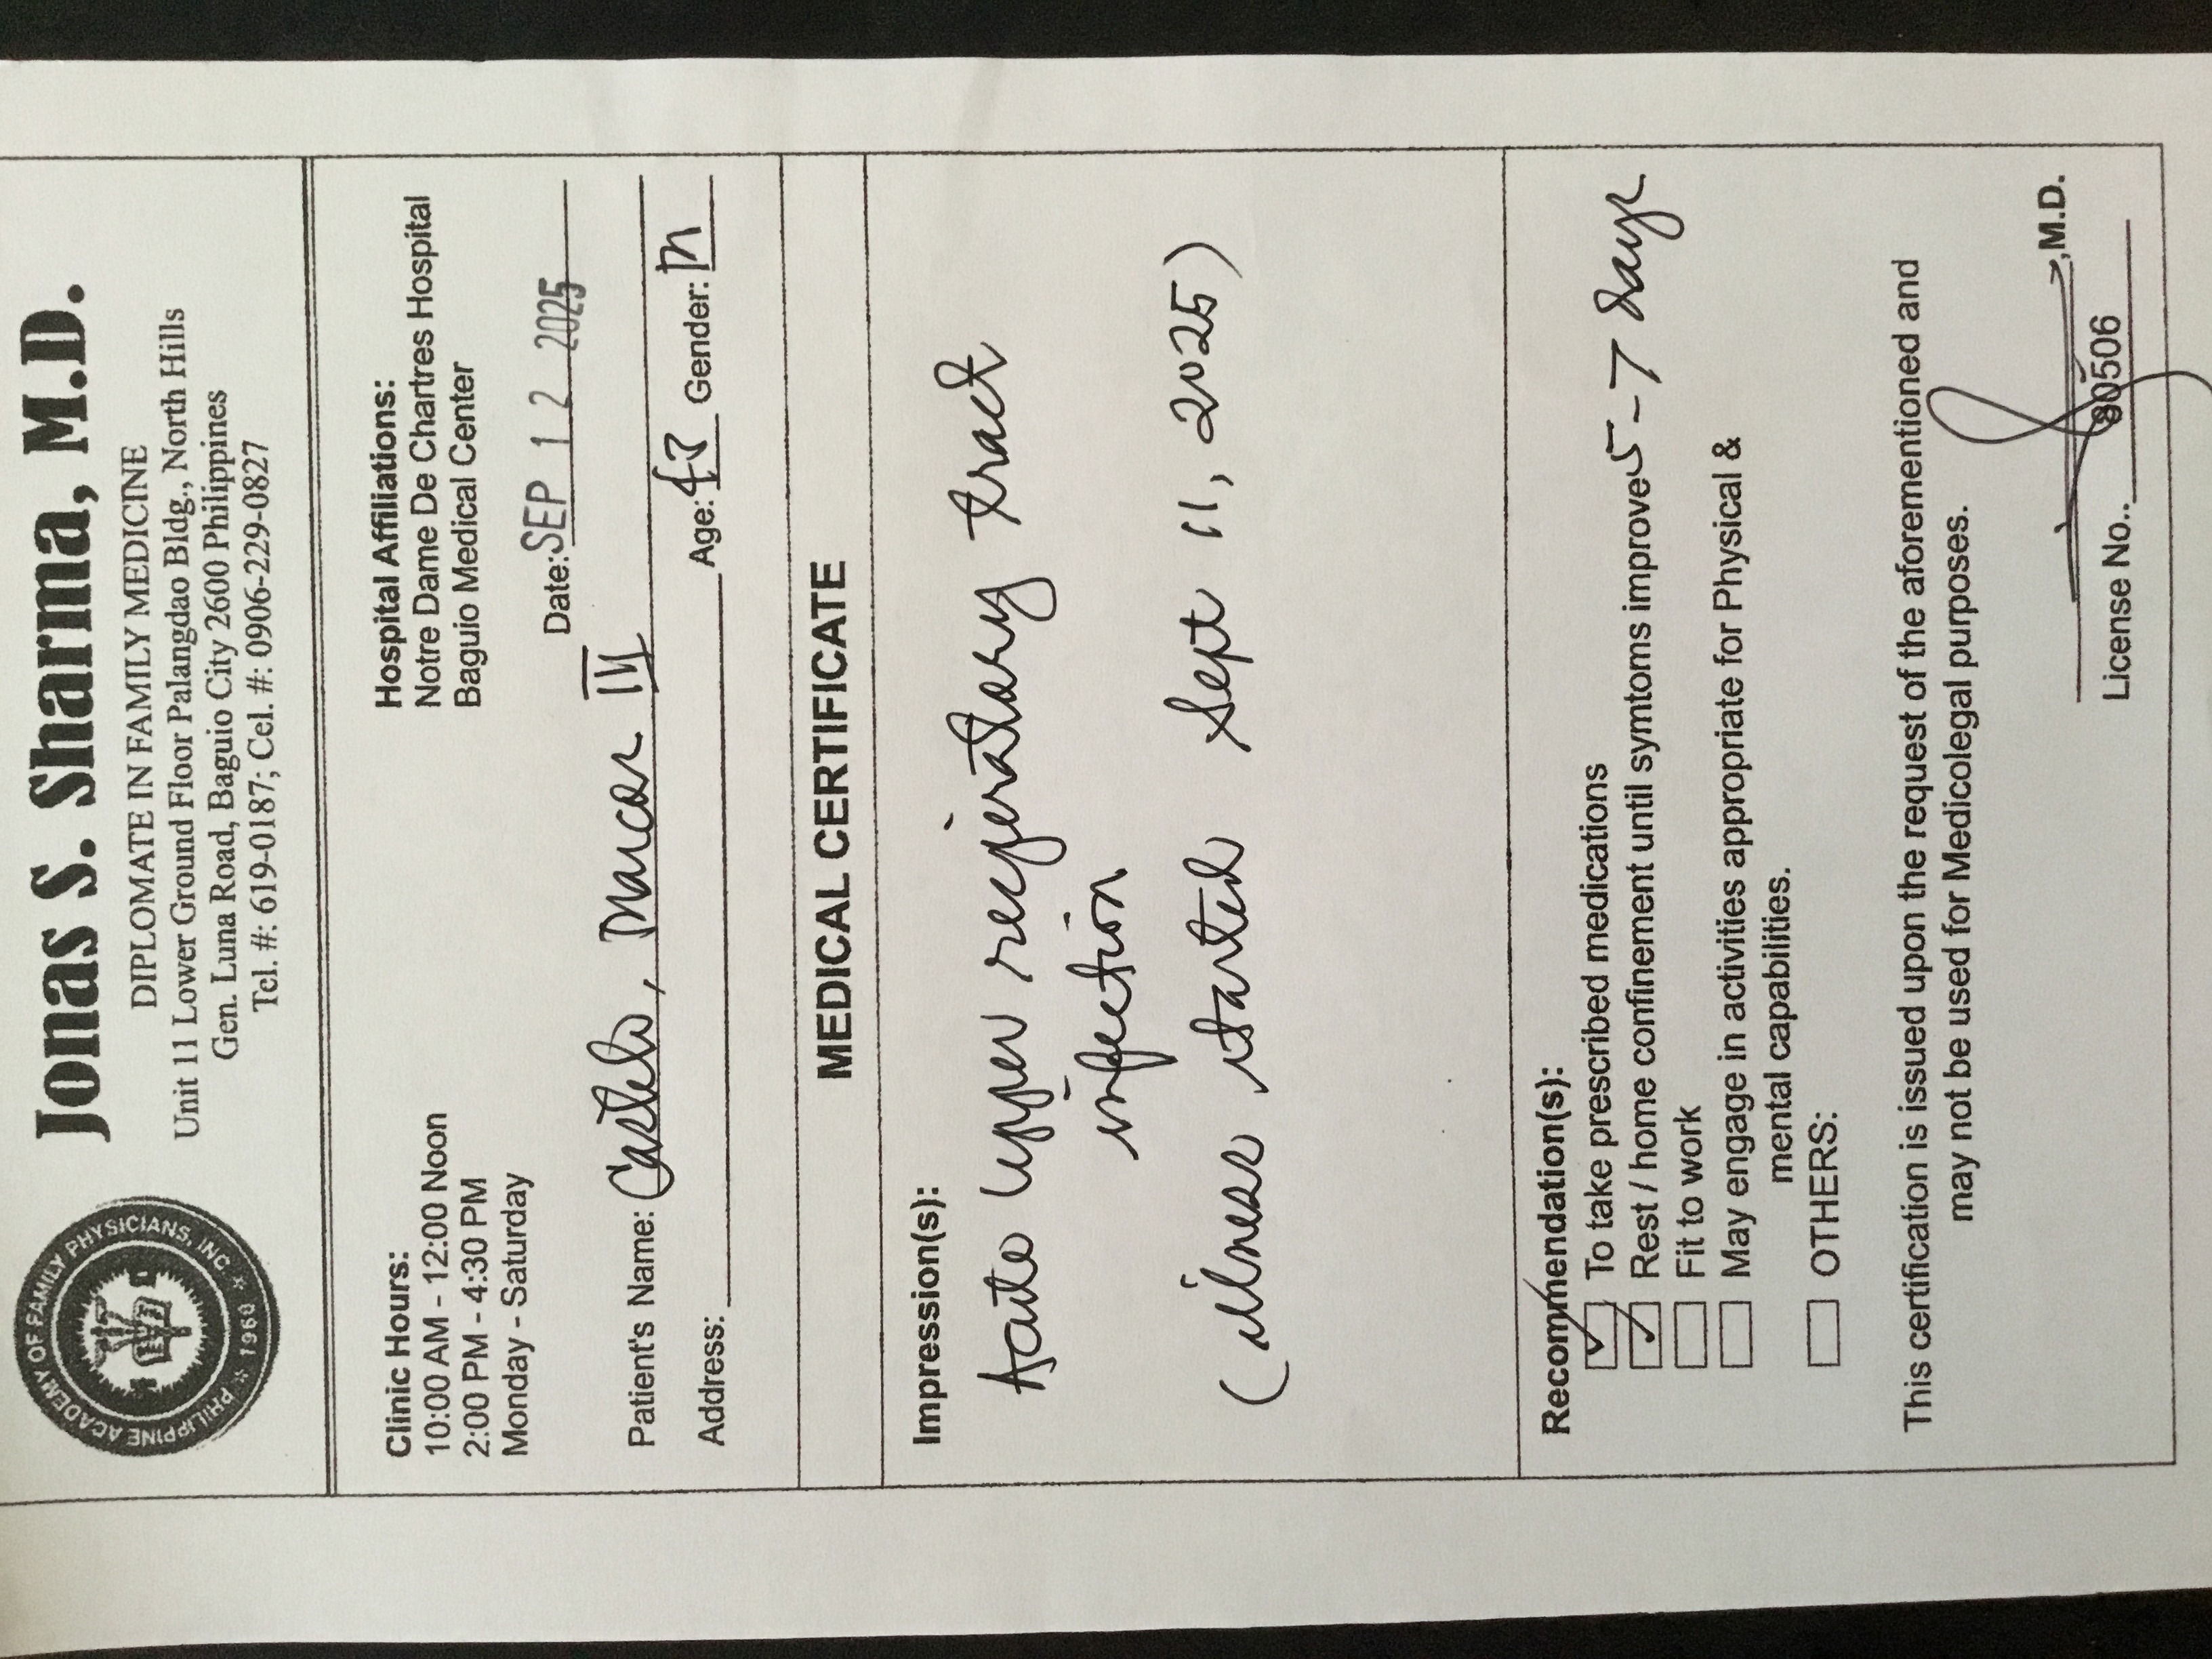 Jonas S. Sharma, M.D.
DIPLOMATE IN FAMILY MEDICINE
Unit 11 Lower Ground Floor Palangdao Bldg., North Hills
Gen. Luna Road, Baguio City 2600 Philippines
Tel. #: 619-0187; Cel. #: 0906-229-0827
PHILIPPINE ACADEMY OF FAMILY PHYSICIANS, INC
1960
Clinic Hours:
10:00 AM - 12:00 Noon
2:00 PM - 4:30 PM
Monday - Saturday
Hospital Affiliations:
Notre Dame De Chartres Hospital
Baguio Medical Center
Date: SEP 12 2025
Patient's Name: Castelo, Marcos III
Address: Age: Gender: M
MEDICAL CERTIFICATE
Impression(s):
Acute upper respiratory tract
infection
(illness started Sept 11, 2025)
Recommendation(s):
To take prescribed medications
Rest / home confinement until symtoms improve 5-7 days
Fit to work
May engage in activities appropriate for Physical &
mental capabilities.
OTHERS:
This certification is issued upon the request of the aforementioned and
may not be used for Medicolegal purposes.
,M.D.
License No.. 80506